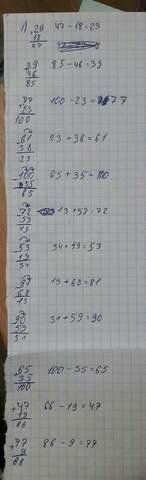 1) 29 47-18=29
18
47
39 85-46=39
46
85
+77 100-23=77
23
100
61 23+38=61
38
23
100 65+35=100
35
65
72 13+59=72
59
13
53 34+19=53
19
34
81 13+68=81
68
13
90 31+59=90
59
31
+65 100-35=65
35
100
+47 66-19=47
19
66
+77 86-9=77
9
86